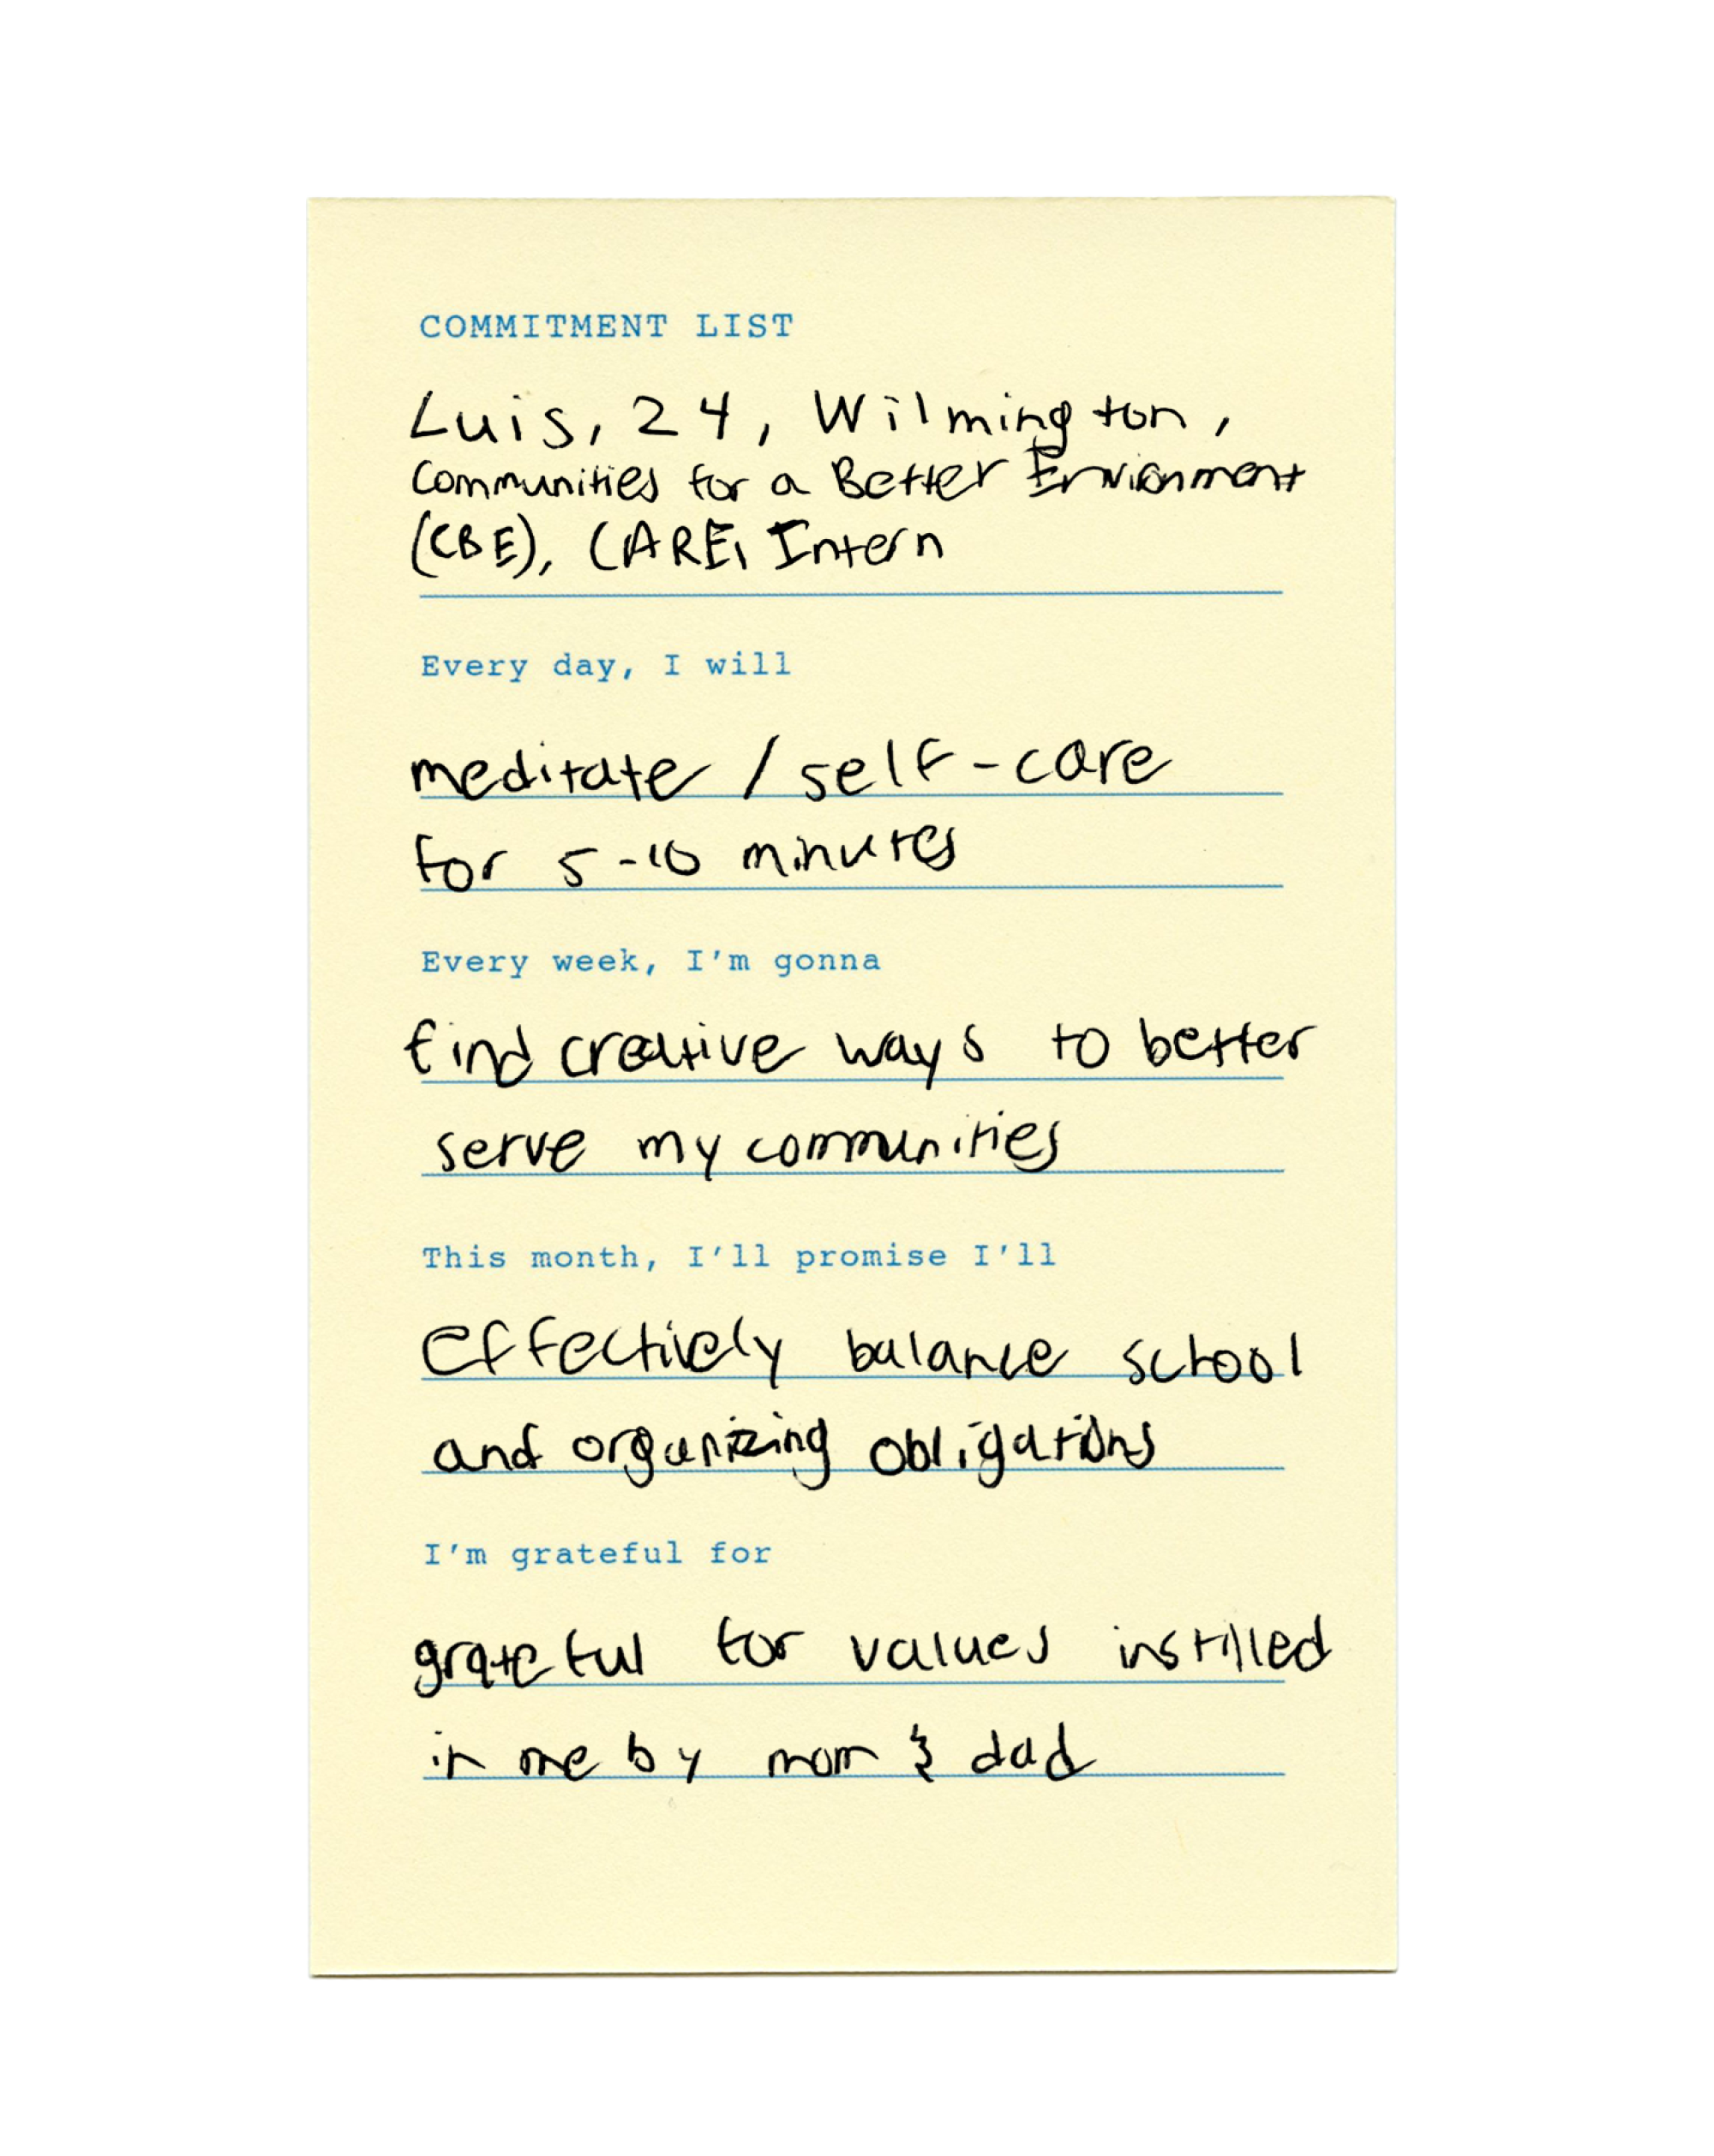 COMMITMENT LIST
Luis, 24, Wilmington,
Communities for a Better Environment
(CBE), CARE, Intern
Every day, I will
meditate / self-care
for 5-10 minutes
Every week, I'm gonna
find creative ways to better
serve my communities
This month, I'll promise I'll
effectively balance school
and organizing obligations
I'm grateful for
grateful for values instilled
in me by mom & dad